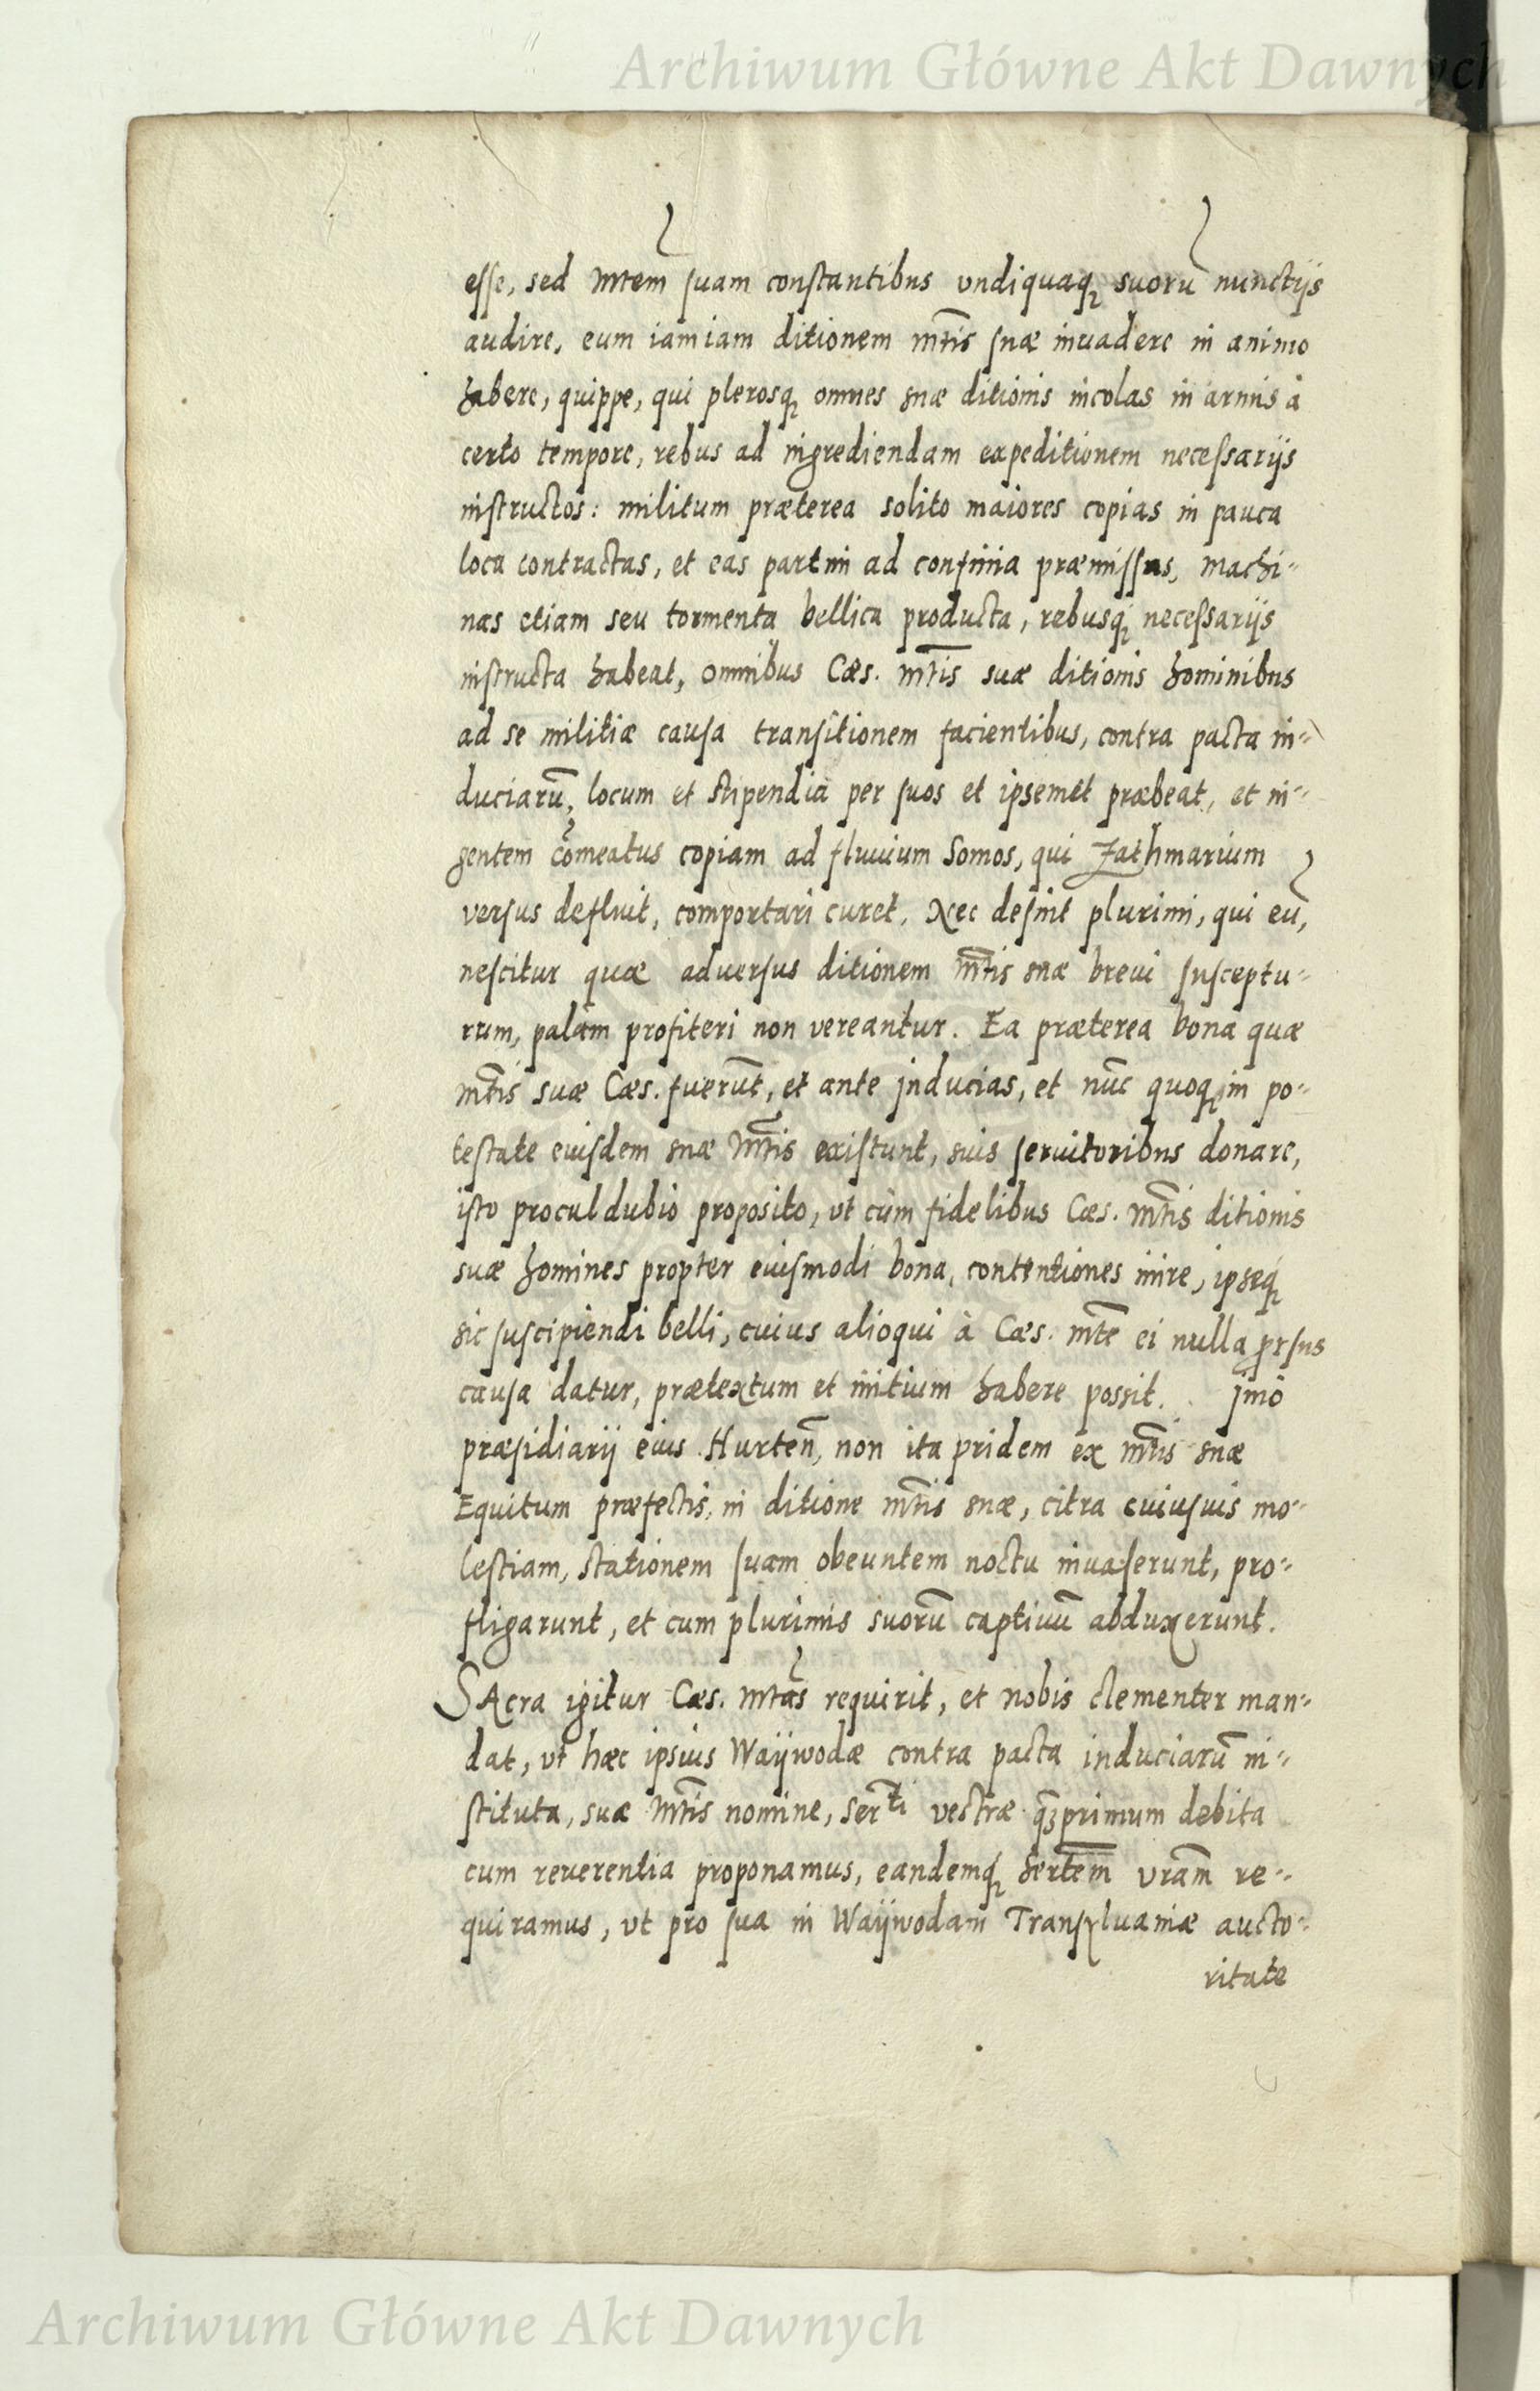 Archiwum Główne Akt Dawnych
esse, sed Mtem suam constantibus vndiquaq; suorū nunctijs
audire, eum iamiam ditionem mtis suæ inuadere in animo
habere, quippe, qui plerosq; omnes suæ ditionis incolas in armis à
certo tempore, rebus ad ingrediendam expeditionem necessarijs
instructos: militum præterea solito maiores copias in pauca
loca contractas, et eas partim ad confinia præmissas, machi-
nas etiam seu tormenta bellica producta, rebusq; necessarijs
instructa habeat, omnibus Cæs. mtis suæ ditionis hominibus
ad se militiæ causa transitionem facientibus, contra pacta in-
duciarū, locum et stipendia per suos et ipsemet præbeat, et in-
gentem cōmeatus copiam ad fluuium Somos, qui Zathmarium
versus defluit, comportari curet. Nec desint plurimi, qui eū,
nescitur quæ aduersus ditionem mtis suæ breui susceptu-
rum, palàm profiteri non vereantur. Ea præterea bona quæ
mtis suæ Cæs. fuerūt, et ante inducias, et nūc quoq; in po-
testate eiusdem suæ Mtis existunt, suis seruitoribus donare,
isto procul dubio proposito, vt cùm fidelibus Cæs. Mtis ditionis
suæ homines propter eiusmodi bona, contentiones inire, ipseq;
sic suscipiendi belli, cuius alioqui à Cæs. mte ei nulla prsus
causa datur, prætextum et initium habere possit. Jmò
præsidiarij eius Hurten̄, non ita pridem ex mtis suæ
Equitum præfectis, in ditione mtis suæ, citra cuiusuis mo-
lestiam, stationem suam obeuntem noctu inuaserunt, pro-
fligarunt, et cum plurimis suorū captiuū abduxerunt.
SAcra igitur Cæs. Mtas requirit, et nobis clementer man-
dat, vt hæc ipsius Waijwodæ contra pacta induciarū in-
stituta, suæ Mtis nomine, Serti vestræ q̄primum debita
cum reuerentia proponamus, eandemq; Sertem vram re-
quiramus, vt pro sua in Waijwodam Transyluaniæ aucto-
ritate
Archiwum Główne Akt Dawnych